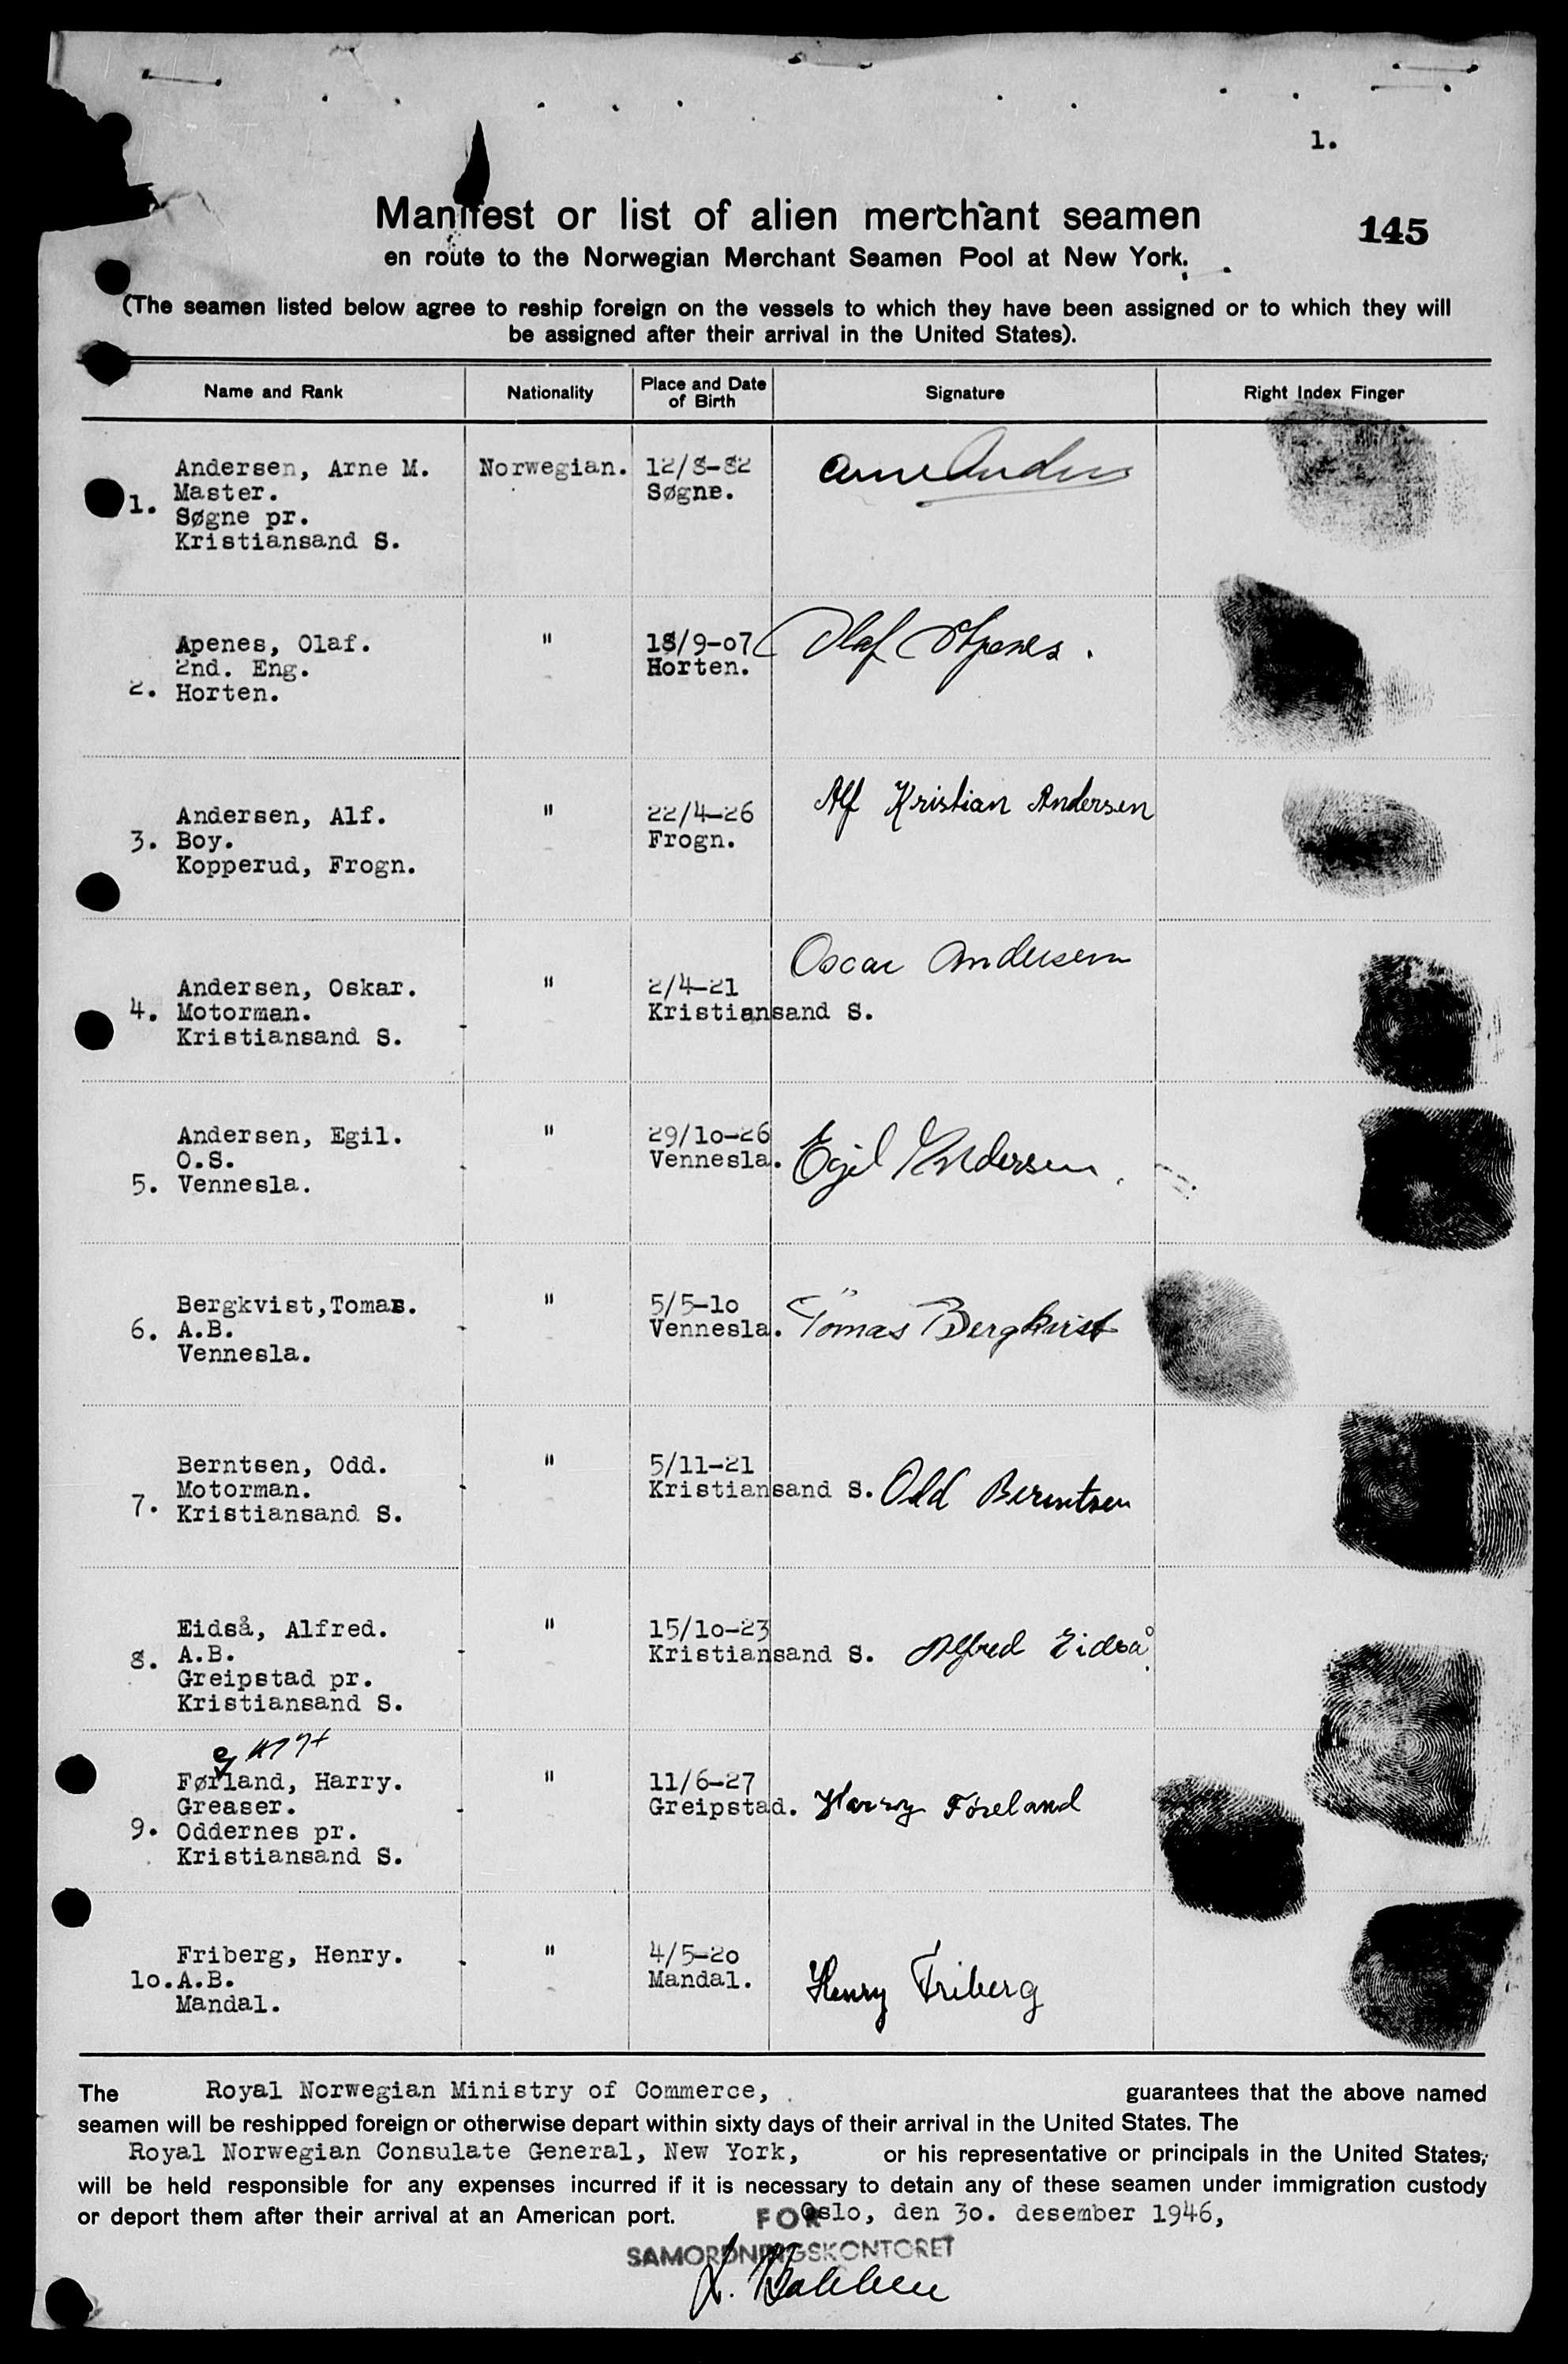 1.
Manifest or list of alien merchant seamen
145
en route to the Norwegian Merchant Seamen Pool at New York.
(The seamen listed below agree to reship foreign on the vessels to which they have been assigned or to which they will
be assigned after their arrival in the United States).
Name and Rank Nationality Place and Date of Birth Signature Right Index Finger
1. Andersen, Arne M. Norwegian. 12/8-82 Arne Anders
Master. Søgne.
Søgne pr.
Kristiansand S.
Apenes, Olaf. " 18/9-07 Olaf Apenes.
2nd. Eng. Horten.
2. Horten.
Andersen, Alf. " 22/4-26 Alf Kristian Andersen
3. Boy. Frogn.
Kopperud, Frogn.
Oscar Andersen
Andersen, Oskar. " 2/4-21
4. Motorman. Kristiansand S.
Kristiansand S.
Andersen, Egil. " 29/10-26 Egil Andersen.
O.S. Vennesla.
5. Vennesla.
Bergkvist,Tomas. " 5/5-10 Tomas Bergkvist
6. A.B. Vennesla.
Vennesla.
Berntsen, Odd. " 5/11-21
Motorman. Kristiansand S. Odd Berentsen
7. Kristiansand S.
Eidså, Alfred. " 15/10-23
8. A.B. Kristiansand S. Alfred Eidså.
Greipstad pr.
Kristiansand S.
e
Førland, Harry. " 11/6-27
Greaser. Greipstad. Harry Föreland
9. Oddernes pr.
Kristiansand S.
Friberg, Henry. " 4/5-20
10. A.B. Mandal. Henry Friberg
Mandal.
The Royal Norwegian Ministry of Commerce, guarantees that the above named
seamen will be reshipped foreign or otherwise depart within sixty days of their arrival in the United States. The
Royal Norwegian Consulate General, New York, or his representative or principals in the United States,
will be held responsible for any expenses incurred if it is necessary to detain any of these seamen under immigration custody
or deport them after their arrival at an American port. FOR Oslo, den 30. desember 1946,
SAMORDNINGSKONTORET